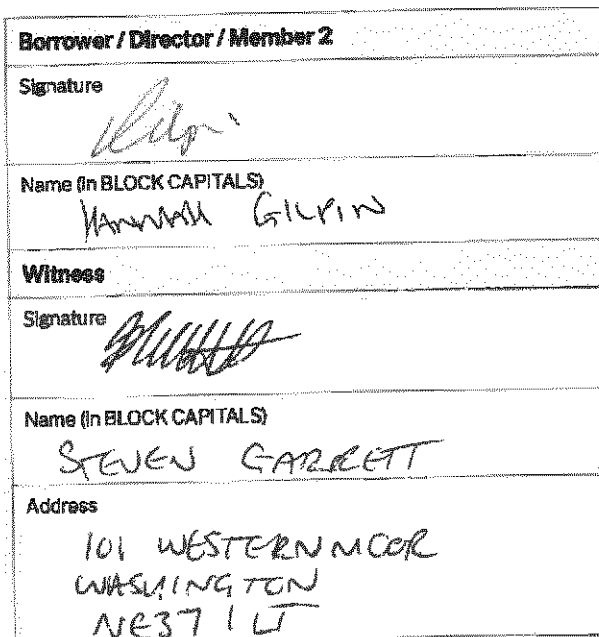 Borrower / Director / Member 2
Signature
Name (in BLOCK CAPITALS)
HANNAH GILPIN
Witness
Signature
Name (in BLOCK CAPITALS)
STEVEN GARRETT
Address
101 WESTERNMOOR
WASHINGTON
NE37 1LT